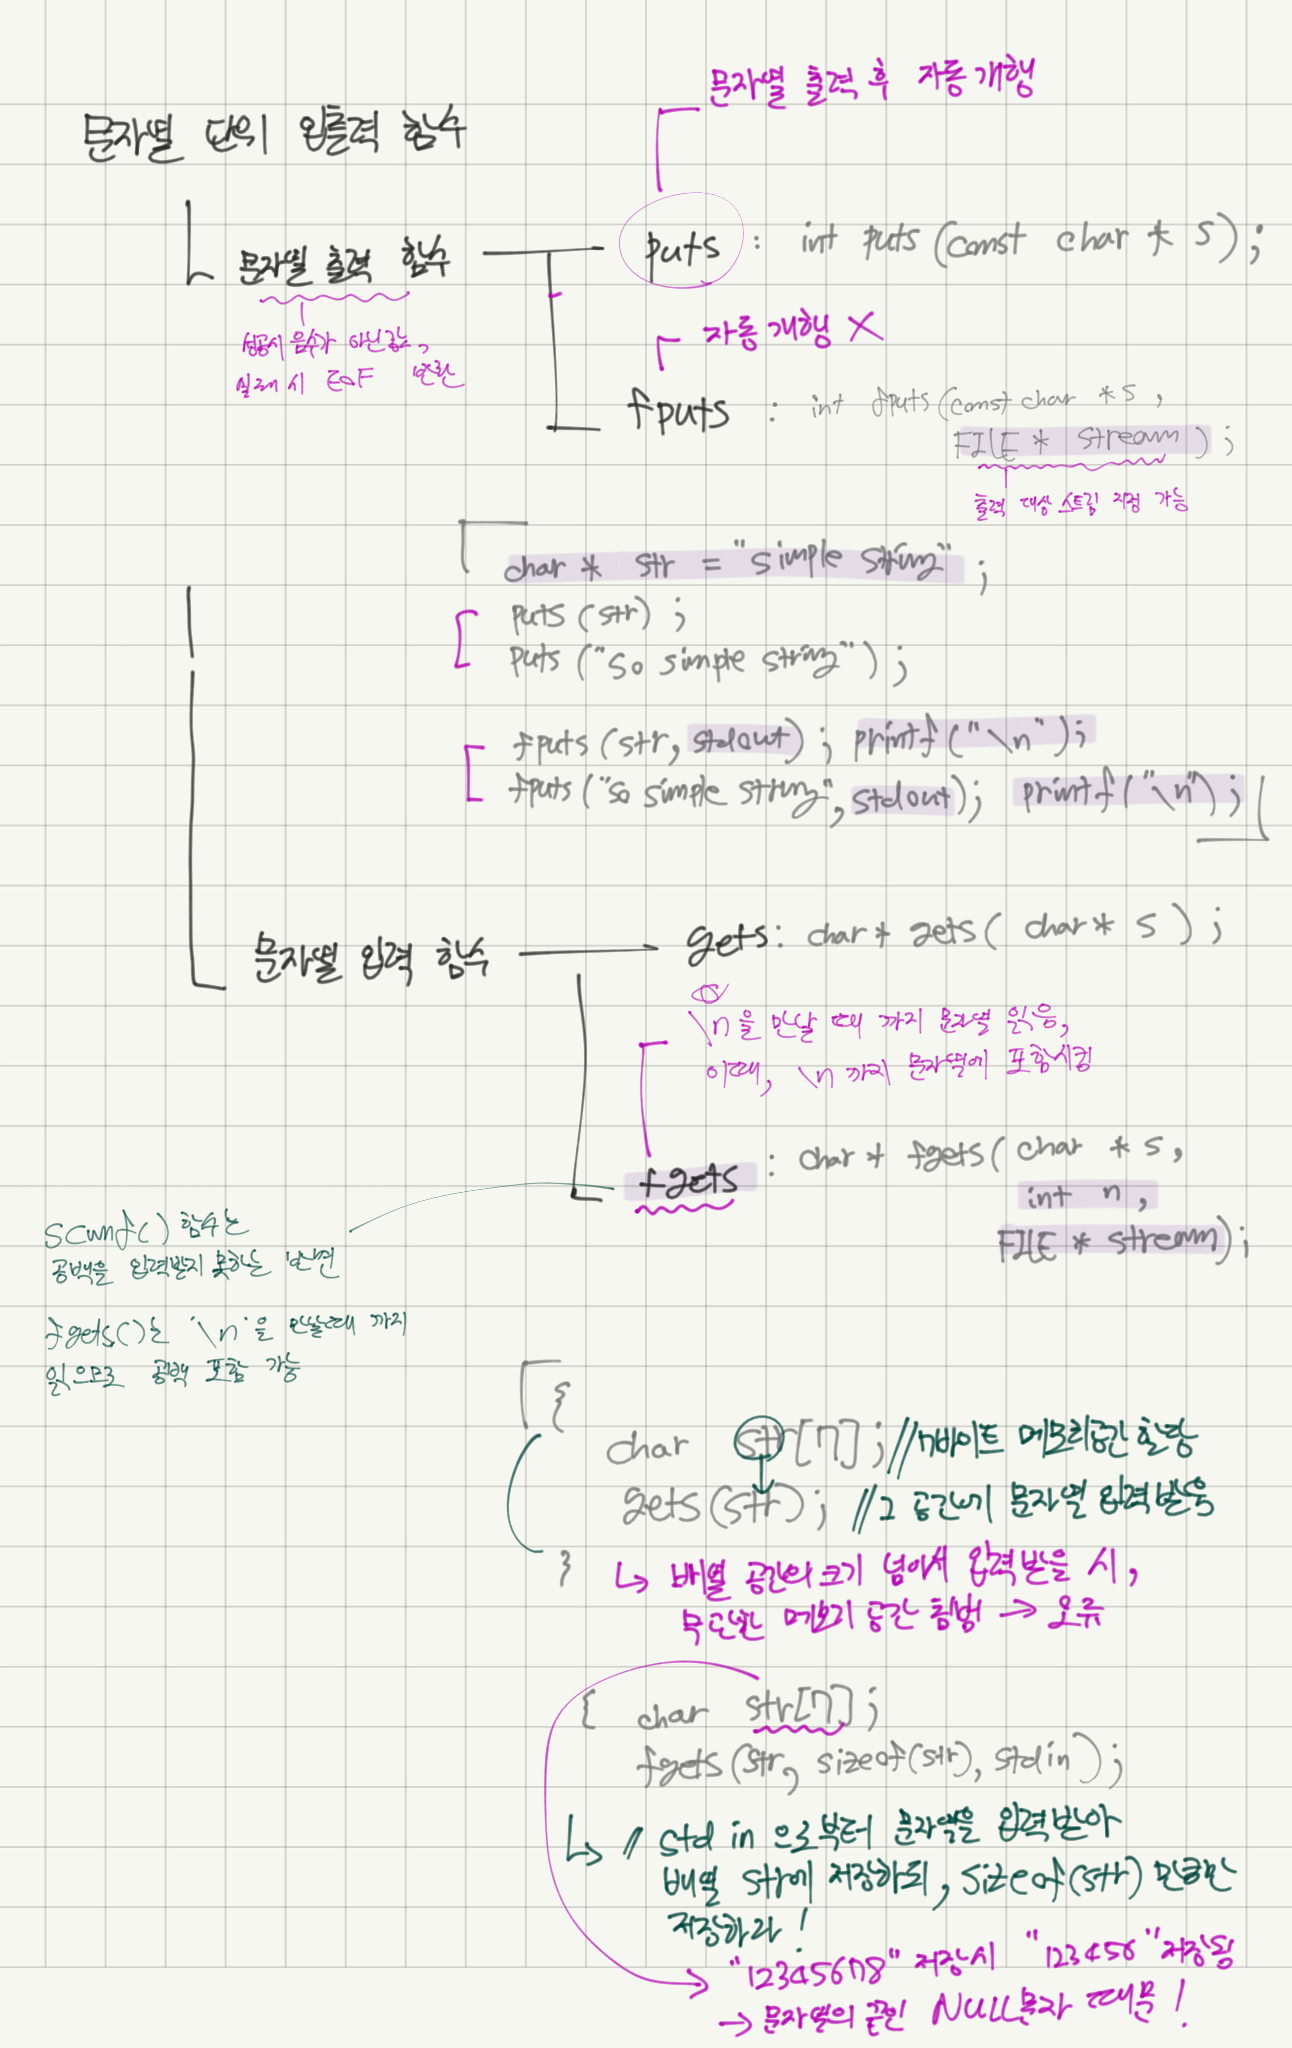 문자열 출력 후 자동개행
문자열 단위 입출력 함수
문자열 출력 함수
puts : int puts (const char * s);
성공시 음수가 아닌 값을,
실패 시 EOF 반환
자동개행 X
fputs : int fputs(const char * s,
FILE * stream);
출력 대상 스트림 지정 가능
char * str = "simple string";
puts (str);
puts ("so simple string");
fputs (str, stdout); printf("\n");
fputs ("so simple string", stdout); printf("\n");
문자열 입력 함수
gets: char* gets( char* s );
\n을 만날 때 까지 문자열 읽음,
이때, \n 까지 문자열에 포함시킴
fgets : char* fgets( char * s,
int n,
FILE * stream);
scanf() 함수는
공백을 입력받지 못하는 반면
fgets()는 '\n'을 만날때 까지
읽으므로 공백 포함 가능
{
char str[7]; //7바이트 메모리공간 할당
gets(str); //그 공간에 문자열 입력받음
}
↳ 배열 공간의 크기 넘어서 입력받을 시,
무단한 메모리 공간 침범 → 오류
{ char str[7];
fgets(str, sizeof(str), stdin);
↳ // stdin 으로부터 문자열을 입력받아
배열 str에 저장하되, sizeof(str) 만큼만
저장하라!
→ "12345678" 저장시 "123456" 저장됨
→ 문자열의 끝인 NULL문자 때문!